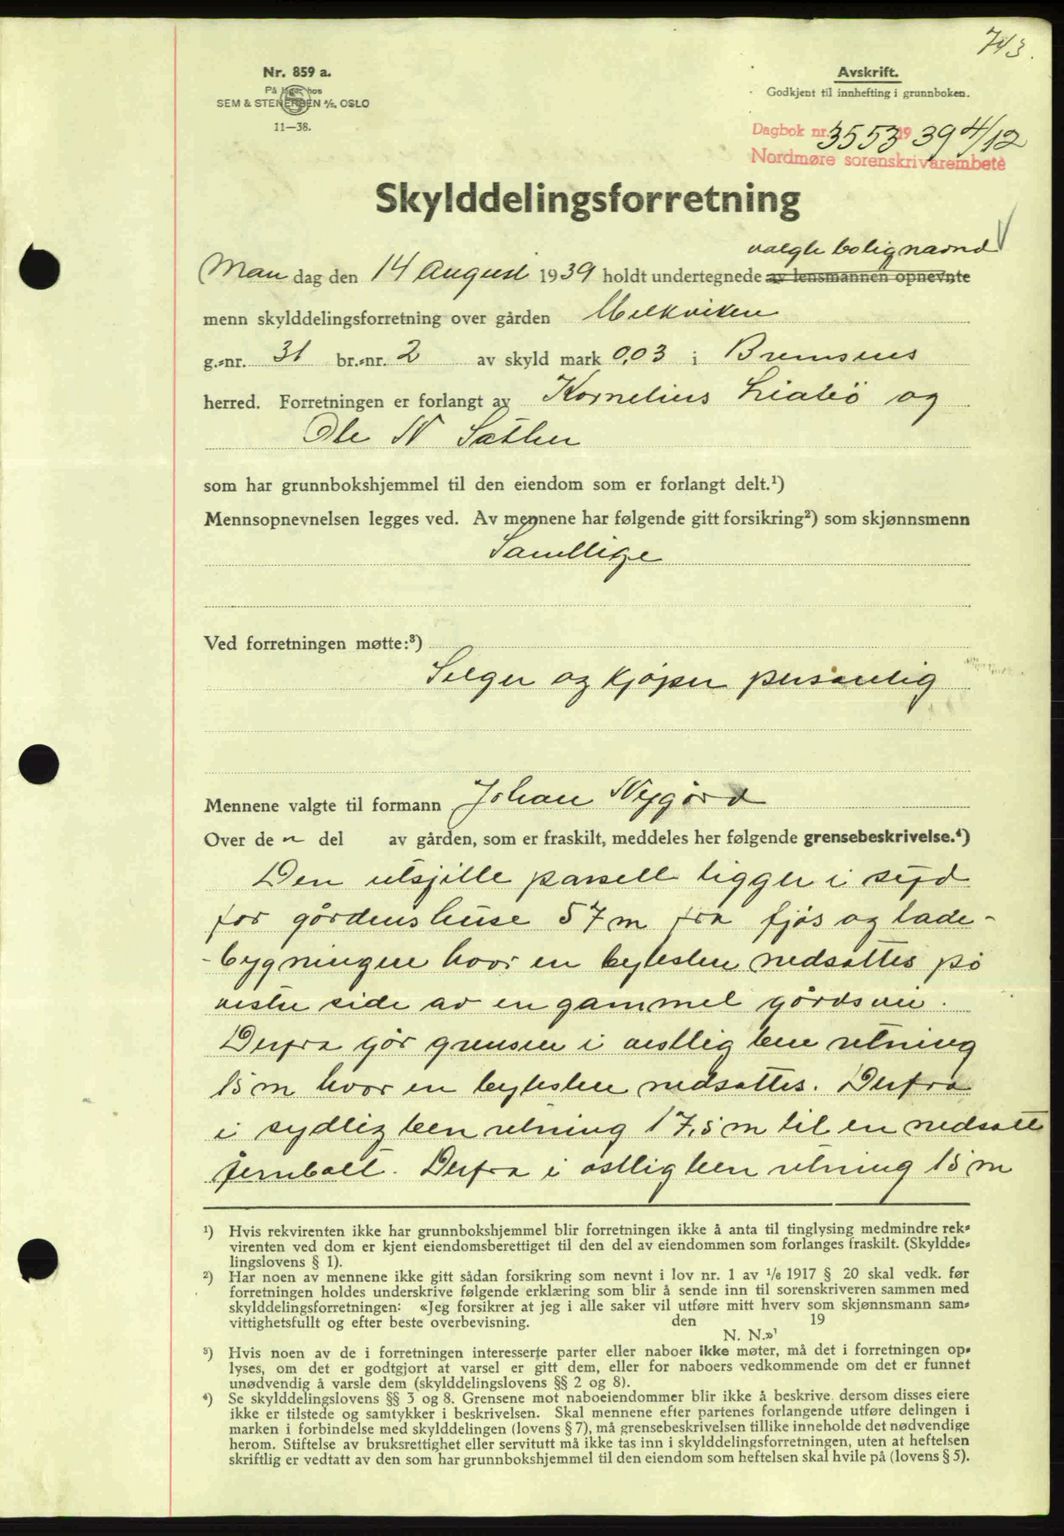 743.
Nr. 859 a.
På lager hos
SEM & STENERSEN A/S, OSLO
11—38.
Avskrift.
Godkjent til innhefting i grunnboken.
Dagbok nr. 3553 1939 4/12
Nordmøre sorenskrivarembete
Skylddelingsforretning
valgte bolignævnd
Man dag den 14 August 1939 holdt undertegnede av lensmannen opnevnte
menn skylddelingsforretning over gården Melkviken
g.-nr. 31 br.-nr. 2 av skyld mark 0,03 i Bremsnes
herred. Forretningen er forlangt av Kornelius Liabö og
Ole N Sæther
som har grunnbokshjemmel til den eiendom som er forlangt delt.¹)
Mennsopnevnelsen legges ved. Av mennene har følgende gitt forsikring²) som skjønnsmenn
Samtlige
Ved forretningen møtte:³)
Selger og kjøper personlig
Mennene valgte til formann Johan Nygård
Over den del av gården, som er fraskilt, meddeles her følgende grensebeskrivelse.⁴)
Den utsjilte parsell ligger i syd
for gårdens huse 57 m fra fjøs og lade-
-bygningen hvor en bytesten nedsattes på
vestre side av en gammel gårdsvei.
Derfra går grensen i vestlig ben retning
15 m hvor en bytesten nedsattes. Derfra
i sydlig ben retning 17,5 m til en nedsatt
jernbolt. Derfra i østlig ben retning 15 m
¹) Hvis rekvirenten ikke har grunnbokshjemmel blir forretningen ikke å anta til tinglysing medmindre rek-
virenten ved dom er kjent eiendomsberettiget til den del av eiendommen som forlanges fraskilt. (Skyldde-
lingslovens § 1).
²) Har noen av mennene ikke gitt sådan forsikring som nevnt i lov nr. 1 av 1/6 1917 § 20 skal vedk. før
forretningen holdes underskrive følgende erklæring som blir å sende inn til sorenskriveren sammen med
skylddelingsforretningen: «Jeg forsikrer at jeg i alle saker vil utføre mitt hverv som skjønnsmann sam-
vittighetsfullt og efter beste overbevisning. den 19
N. N.»
³) Hvis noen av de i forretningen interesserte parter eller naboer ikke møter, må det i forretningen op-
lyses, om det er godtgjort at varsel er gitt dem, eller for naboers vedkommende om det er funnet
unødvendig å varsle dem (skylddelingslovens §§ 2 og 8).
⁴) Se skylddelingslovens §§ 3 og 8. Grensene mot naboeiendommer blir ikke å beskrive dersom disses eiere
ikke er tilstede og samtykker i beskrivelsen. Skal mennene efter partenes forlangende utføre delingen i
marken i forbindelse med skylddelingen (lovens § 7), må grensebeskrivelsen tillike inneholde det nødvendige
herom. Stiftelse av bruksrettighet eller servitutt må ikke tas inn i skylddelingsforretningen, uten at heftelsen
skriftlig er vedtatt av den som har grunnbokshjemmel til den eiendom som heftelsen skal hvile på (lovens § 5).